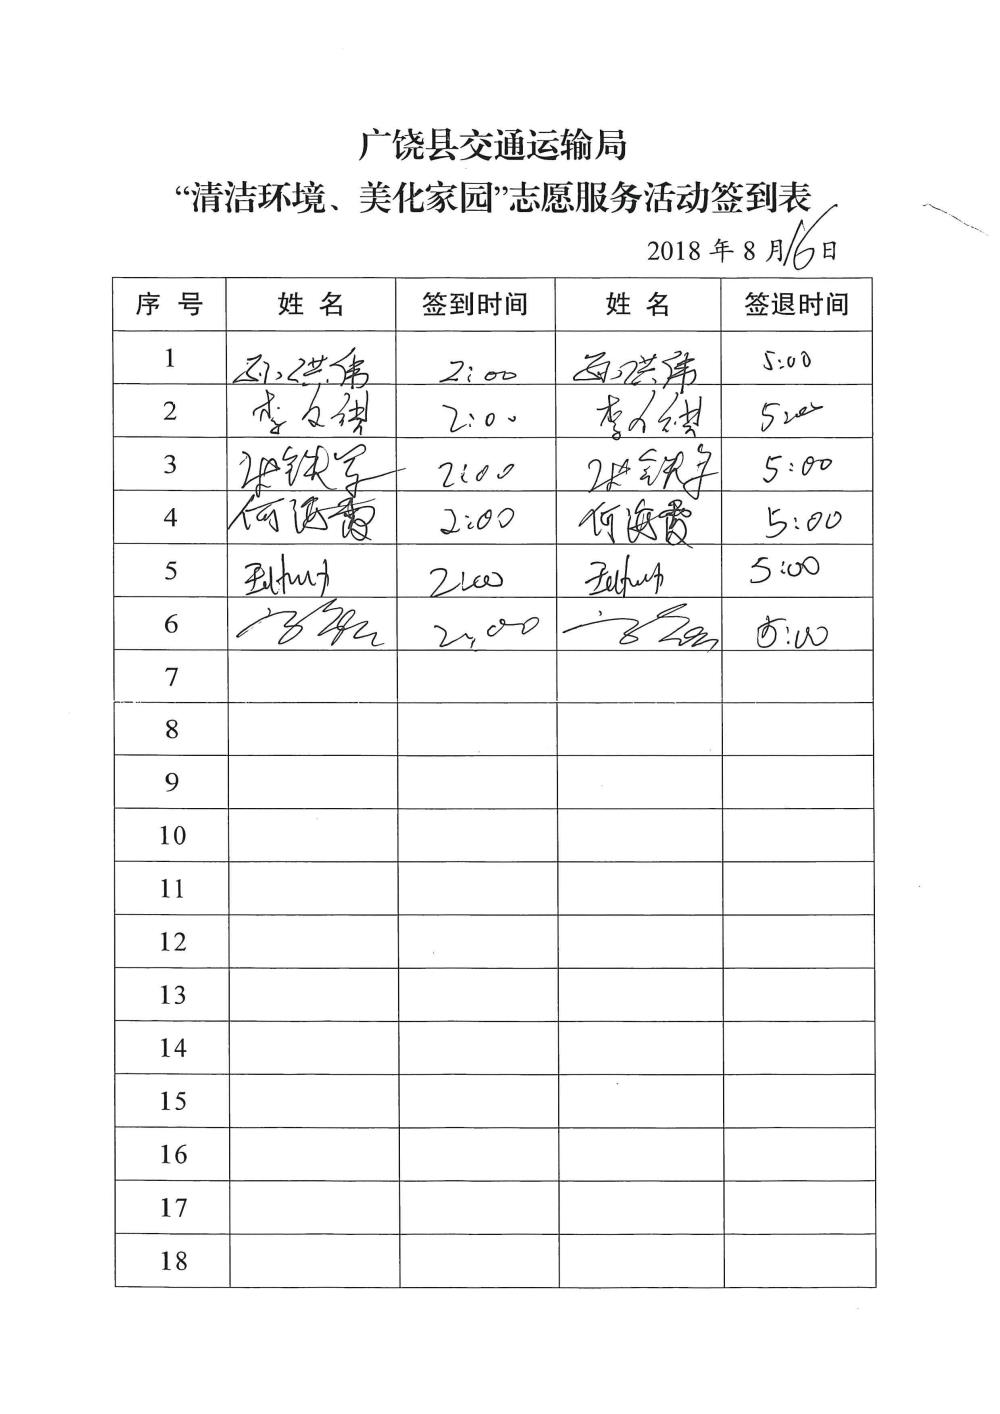 广饶县交通运输局
“清洁环境、美化家园”志愿服务活动签到表
2018 年 8 月16日
序 号 姓 名 签到时间 姓 名 签退时间
1 洪伟 2:00 洪伟 5:00
2 李 2:00 李 5:00
3 铁军 2:00 铁军 5:00
4 何海霞 2:00 何海霞 5:00
5 2:00 5:00
6 2:00 5:00
7
8
9
10
11
12
13
14
15
16
17
18